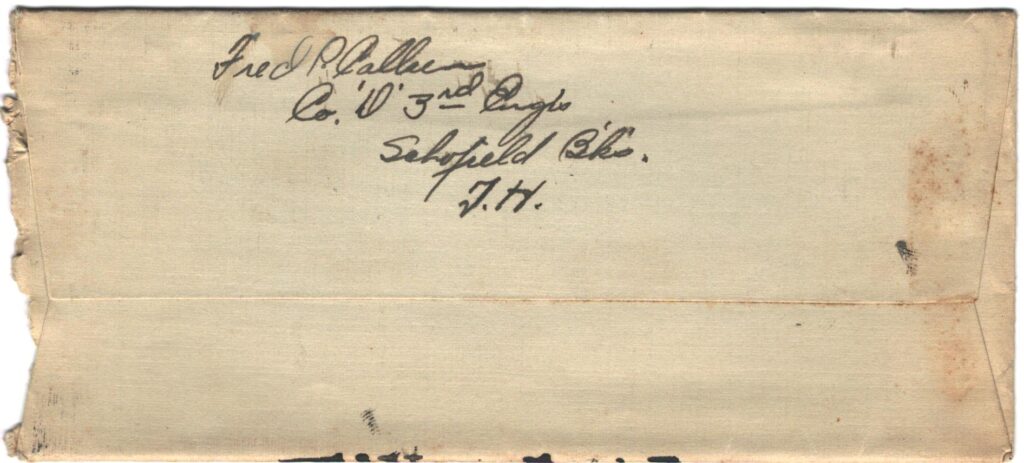 Fred P. Callen
Co. 'D' 3rd Engrs
Schofield Bks.
T.H.